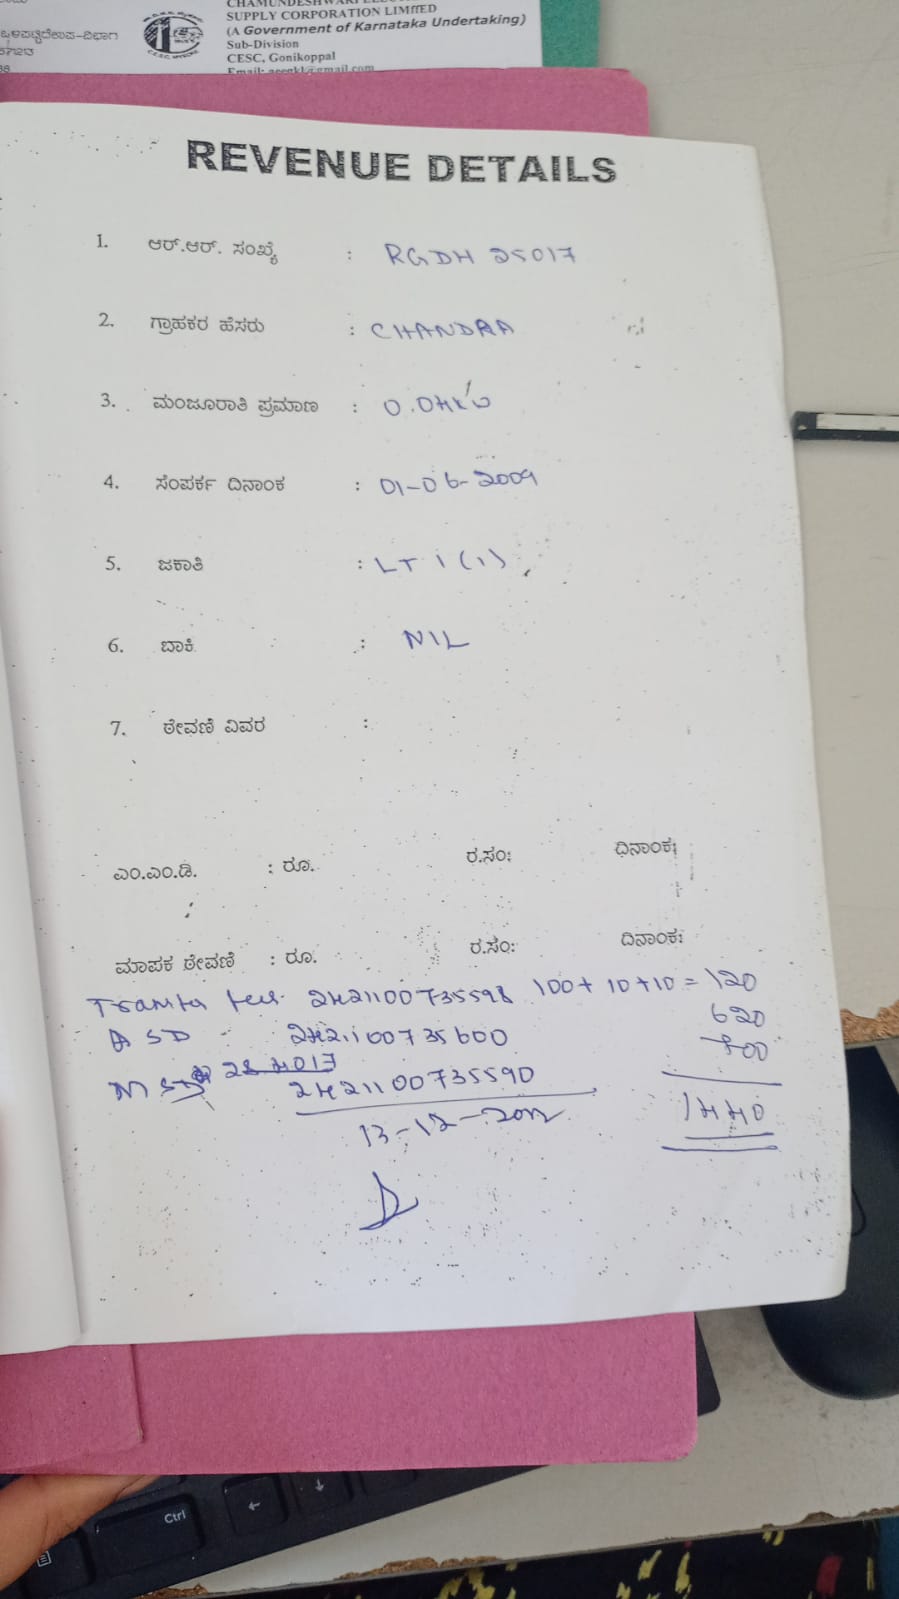 CHAMUNDESHWARI
SUPPLY CORPORATION LIMITED
(A Government of Karnataka Undertaking)
Sub-Division
CESC, Gonikoppal
REVENUE DETAILS
1. ಆರ್.ಆರ್. ಸಂಖ್ಯೆ : RGDH 25017
2. ಗ್ರಾಹಕರ ಹೆಸರು : CHANDRA
3. ಮಂಜೂರಾತಿ ಪ್ರಮಾಣ : 0.04KW
4. ಸಂಪರ್ಕ ದಿನಾಂಕ : 01-06-2009
5. ಜಕಾತಿ : LT 1(1)
6. ಬಾಕಿ : NIL
7. ಠೇವಣಿ ವಿವರ :
ಎಂ.ಎಂ.ಡಿ. : ರೂ. ರ.ಸಂ: ದಿನಾಂಕ:
ಮಾಪಕ ಠೇವಣಿ : ರೂ. ರ.ಸಂ: ದಿನಾಂಕ:
2421100735598 100+10+10=120
ASD - 2421100735600 620
MSD 2421100735590 700
13-12- 1440
Ctrl